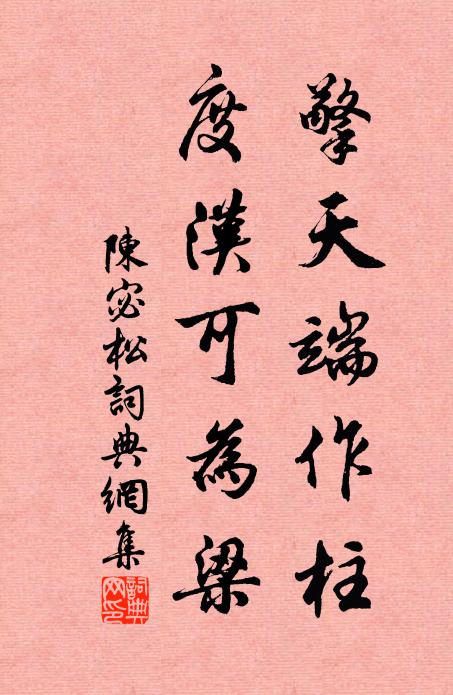 擎天端作柱
度漢可為梁
陳宓松詞典網集
詞典網印